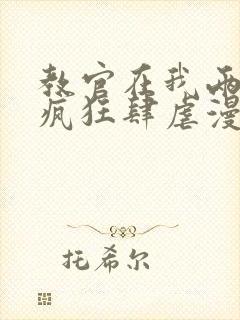 教官在我两
疯狂肆虐漫
托希尔